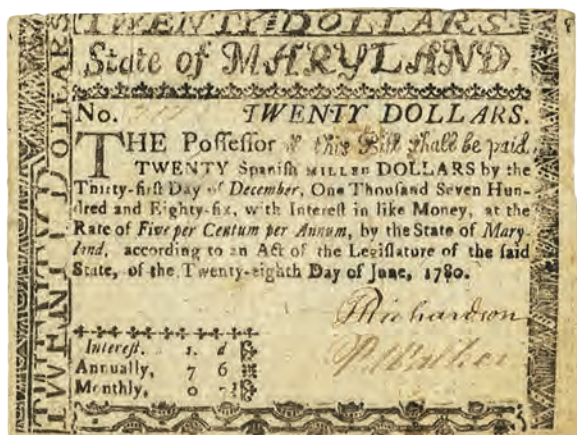 TWENTY DOLLARS.
TWENTY DOLLARS
TWENTY DOLLARS
State of MARYLAND.
No. TWENTY DOLLARS.
THE Poſſeſſor of this Bill ſhall be paid,
TWENTY Spaniſh MILLED DOLLARS by the
Thirty-firſt Day of December, One Thouſand Seven Hun-
dred and Eighty-ſix, with Intereſt in like Money, at the
Rate of Five per Centum per Annum, by the State of Mary-
land, according to an Act of the Legiſlature of the ſaid
State, of the Twenty-eighth Day of June, 1780.
Richardson
Intereſt. s. d
Annually, 7 6
Monthly, 0 7½